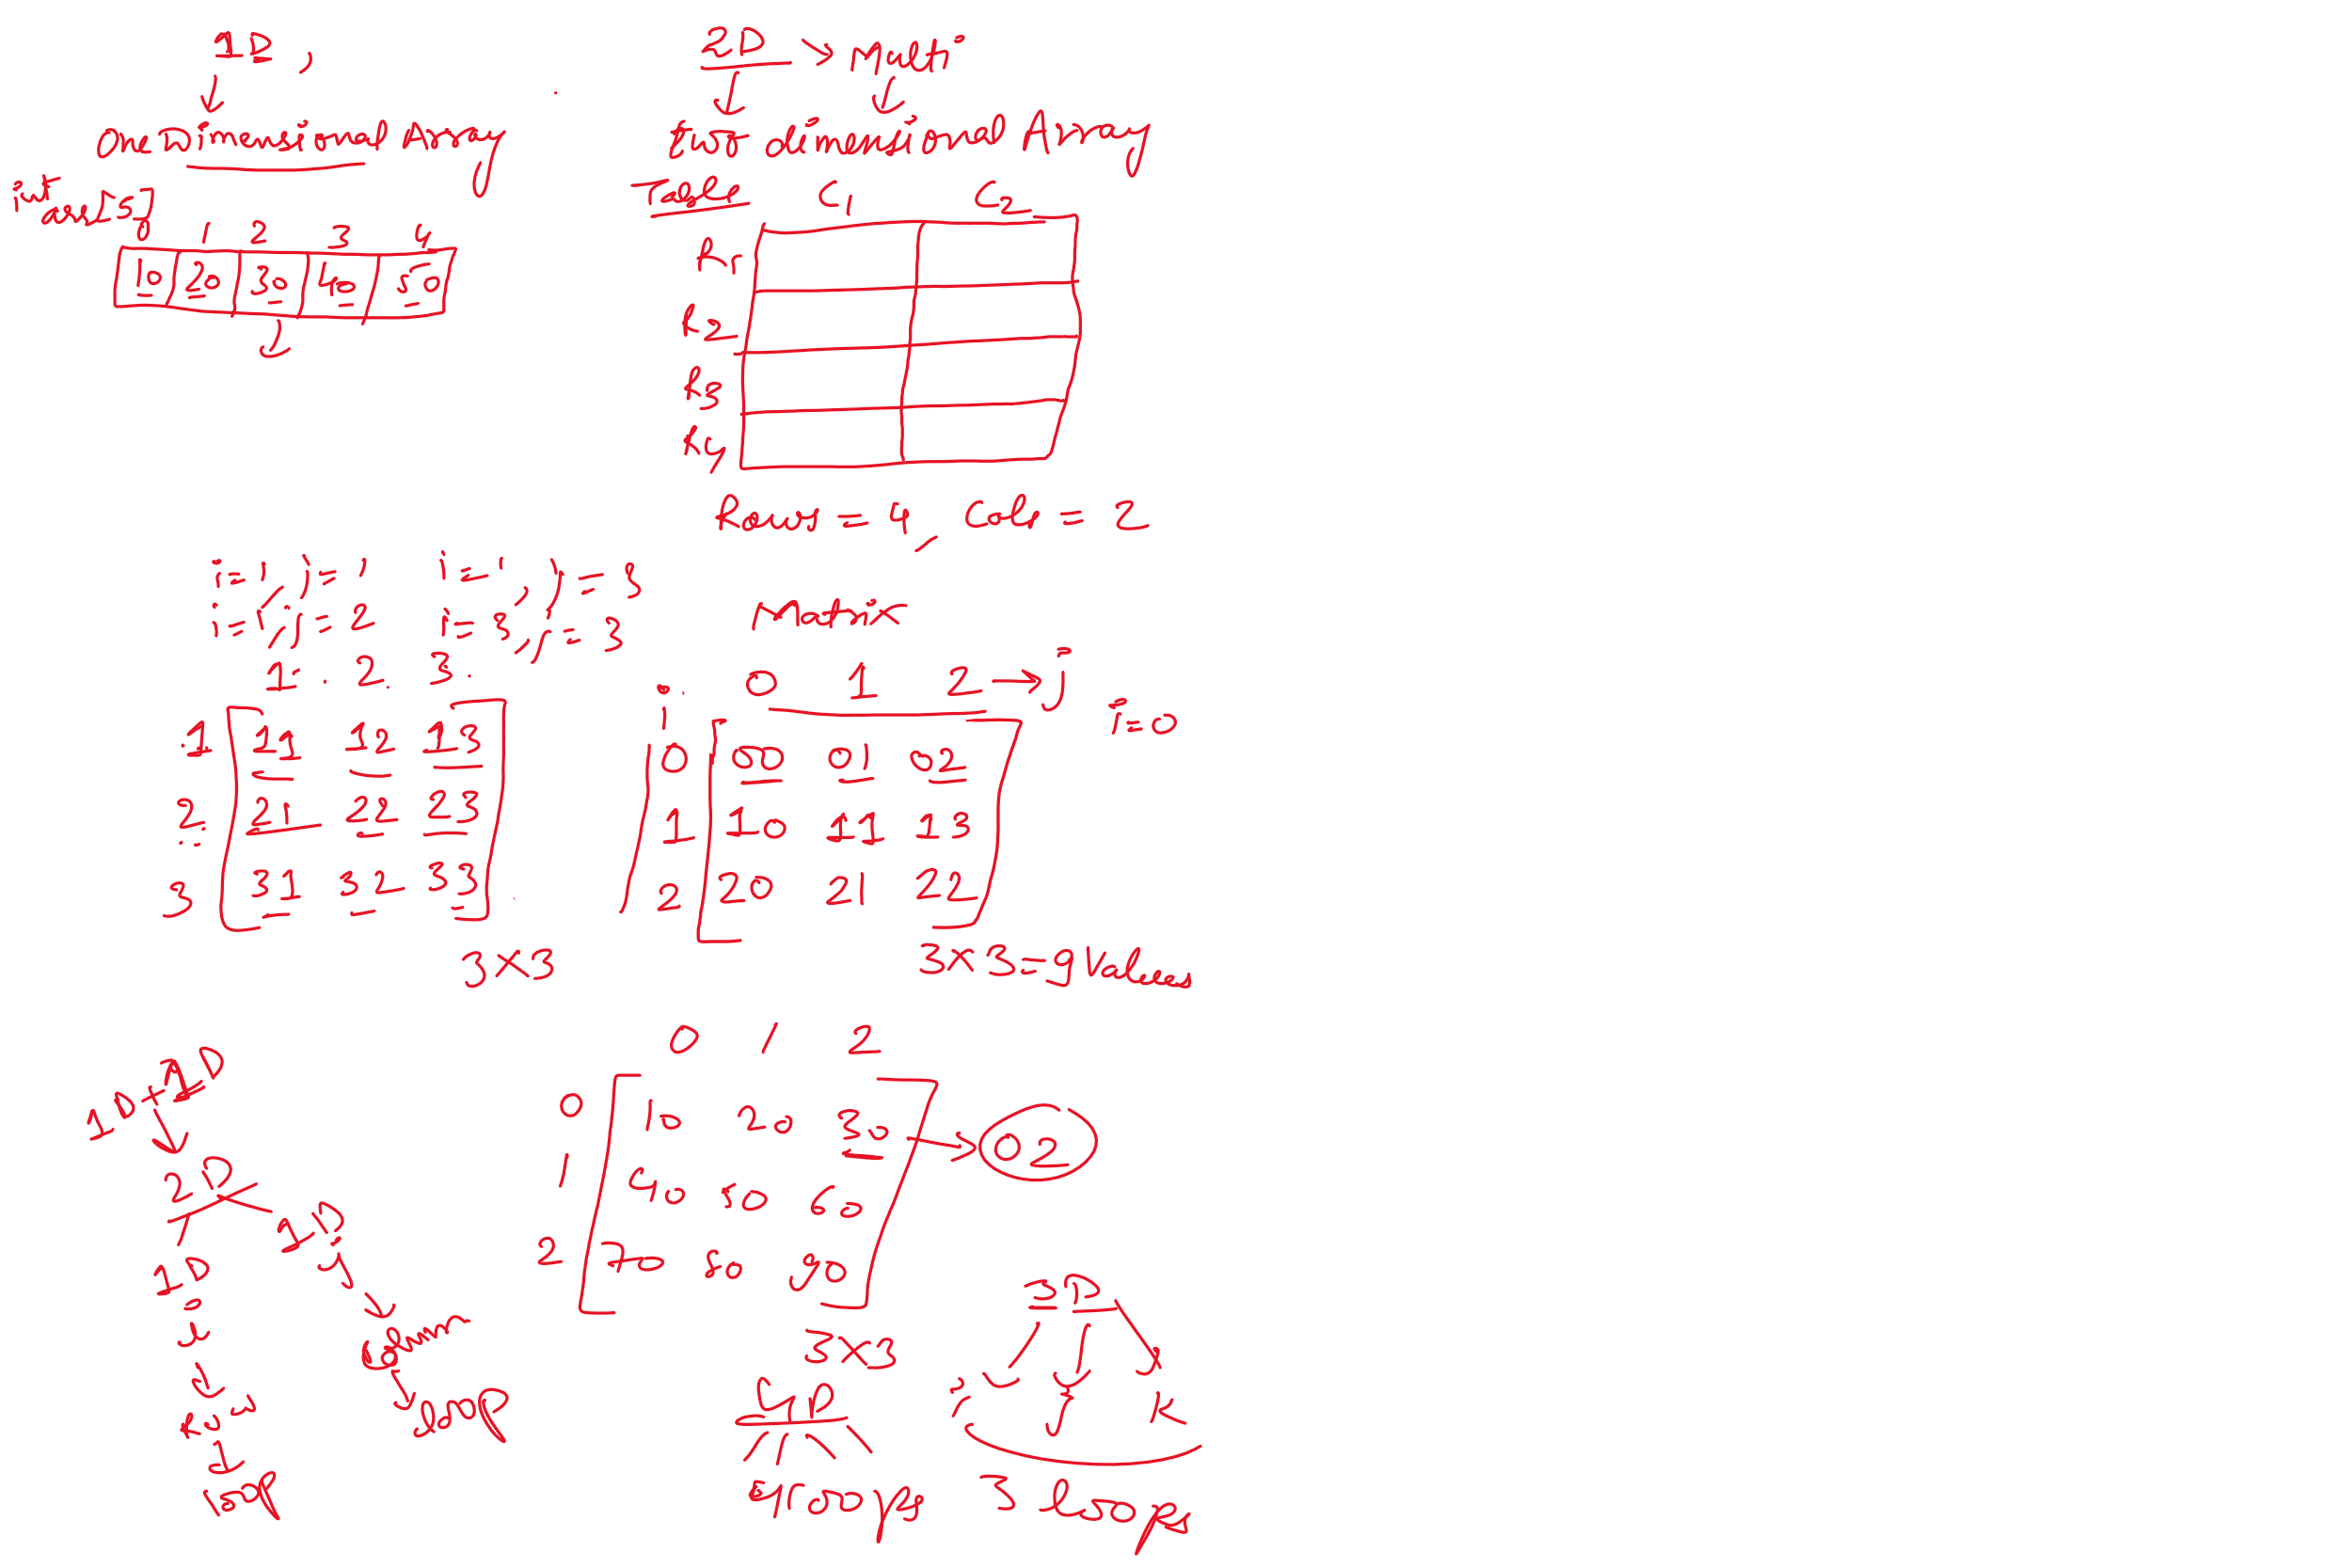 1D ,
one dimensional Array
int arr[5]
0 1 2 3 4
10 20 30 40 50
2D → Multi
two dimensional Array
Table C1 C2
R1
R2
R3
R4
Rows = 4, Cols = 2
i=1, j=1 i=1, j=3
i=1, j=2 i=3, j=3
1 2 3
1 11 12 13
2 21 22 23
3 31 32 33
3×3
Matrix
i 0 1 2 → j
i=0
0 00 01 02
1 10 11 13
2 20 21 22
3×3=9 Values
1D+1D
2D
1D 1D
i j
Row column
loop loop
0 1 2
0 10 20 30 → 02
1 40 50 60
2 70 80 90
3×3
4D
4 loops
3D
i j k
3 loops